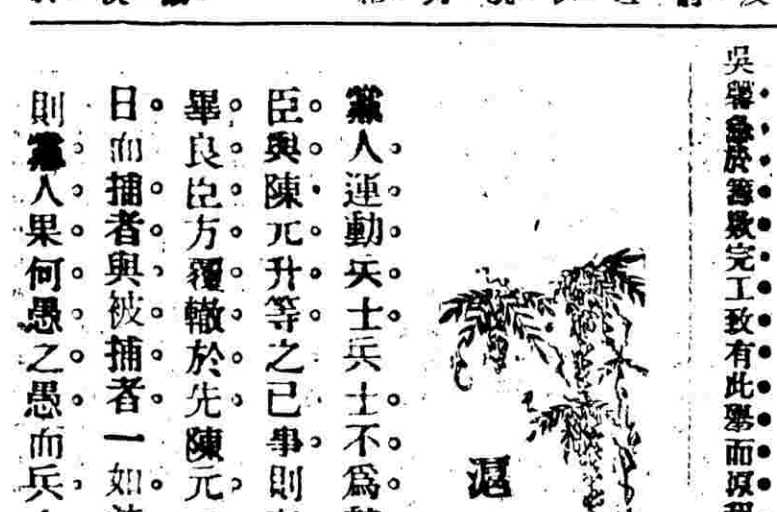 吳
急於籌款完工致有此舉而原程
滬
黨人運動兵士兵士不爲
臣與陳元升等之已事則
畢良臣方覆轍於先陳元
日而捕者與被捕者一如
則黨人果何愚之愚而兵